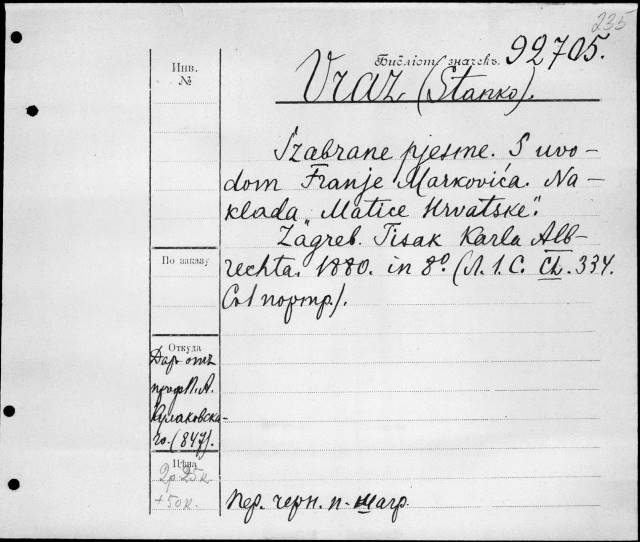 235
Инв.
№
Библіот. значекъ. 92705.
Vraz, (Stanko).
Izabrane pjesme. S uvo-
dom Franje Markovića. Na-
klada „Matice Hrvatske“.
Zagreb. Tisak Karla Alb-
rechta. 1880. in 8º (Л. 1. С. CL. 334.
Съ 1 портр.).
По заказу
Откуда
Даръ отъ
проф. П. А.
Кулаковска-
го. (847).
Цѣна
2р 25к
+50к.
Пер. черн. п-шагр.